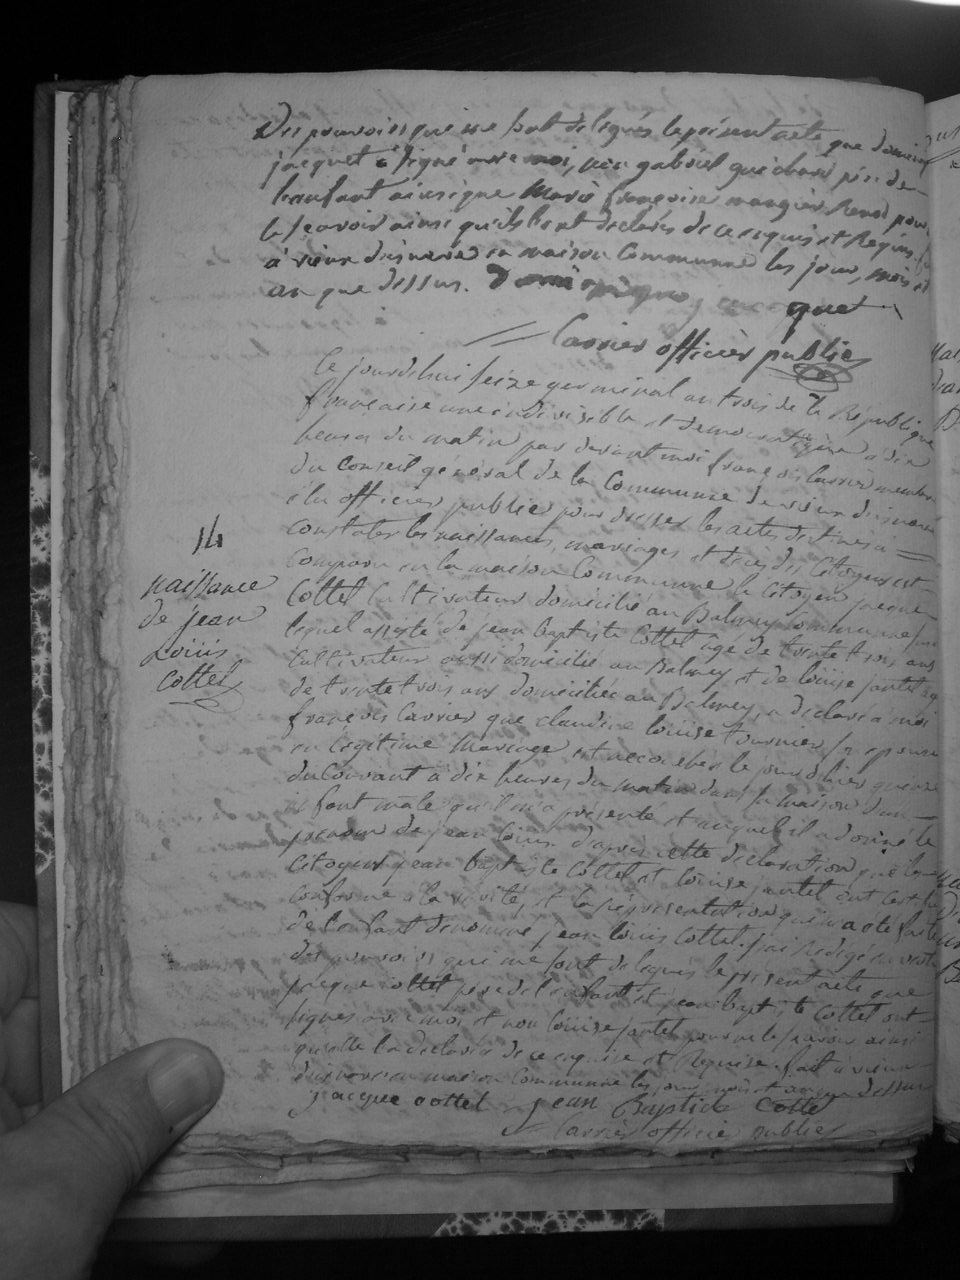 Des pouvoirs qui me sont delegués le présent acte que dominique
jacquet a signé avec moi, gabriel père de
lenfant ainsi que Marie françoise pour
le scavoir ainsi qu'ils l'ont declarés de ce requis et Requise
à vieux en maison Communne les jour, mois et
an que dessus. Dominique jacquet
Carrier officier public
Ce jourd'hui seize germinal an trois de la République
française une indivisible et democratique a dix
heures du matin par devant moi françois Carrier membre
du Conseil général de la Commune de vieux
élu officier public pour dresser les actes destinés à
constater les naissances, mariages et décès des Citoyens est
comparu en la maison Communne le Citoyen jacque
Cottet Cultivateur domicilié au Balmey Commune
lequel assisté de jean baptiste Cottet age de trente trois ans
Cultivateur aussi domicilié au Balmey et de louise jantet
de trente trois ans domiciliée au Balmey, a déclaré à moi
françois Carrier que claudine louise tournier son epouse
en legitime Mariage est accouchée le jour d'hier quinze
du Courant à dix heures du matin dans sa maison d'un
enfant male qu'il m'a présenté et auquel il a donné le
prenom de jean louis d'apres cette declaration que les
Citoyens jean baptiste Cottet et louise jantet ont
conforme a la vérité, et la représentation qui m'a été faite
de l'enfant denommé jean louis Cottet. j'ai redigé en vertu
des pouvoirs qui me sont delegués le present acte que
jacque cottet pere de l'enfant et jean baptiste Cottet ont
signés avec moi et non louise jantet pour ne le scavoir ainsi
qu'elle l'a declarée de ce enquise et Requise. fait à vieux
en maison Communne les jour mois et an que dessus
jacque cottet jean Baptiste Cottet
Carrier officier public
14
naissance
de jean
Louis
Cottet